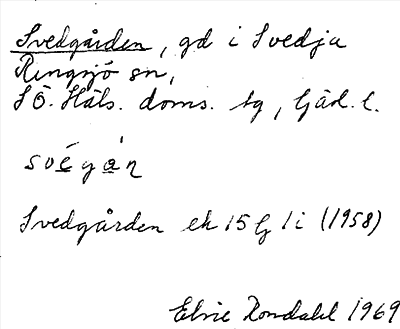 Svedgården, gd i Svedja
Ringsjö sn,
SÖ. Häls. doms. tg, Gävl. l.
Svedgården ek 15 G 1 i (1958)
Elvie Rondahl 1969